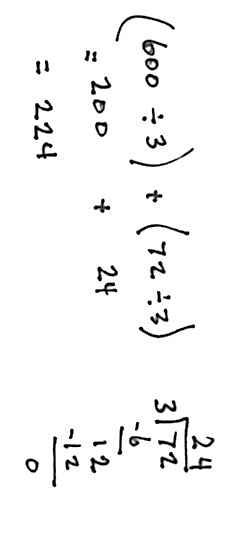 (600 ÷ 3) + (72 ÷ 3)
= 200 + 24
= 224
24
3)72
-6
12
-12
0